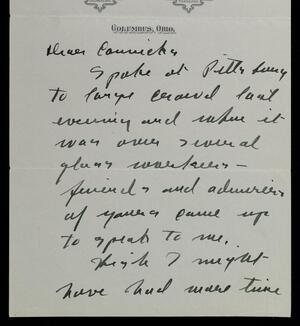 COLUMBUS, OHIO.
Dear Connick,
Spoke at Pittsburg
to large crowd last
evening and when it
was over several
glass workers –
friends and admirers
of yours came up
to speak to me.
Wish I might
have had more time